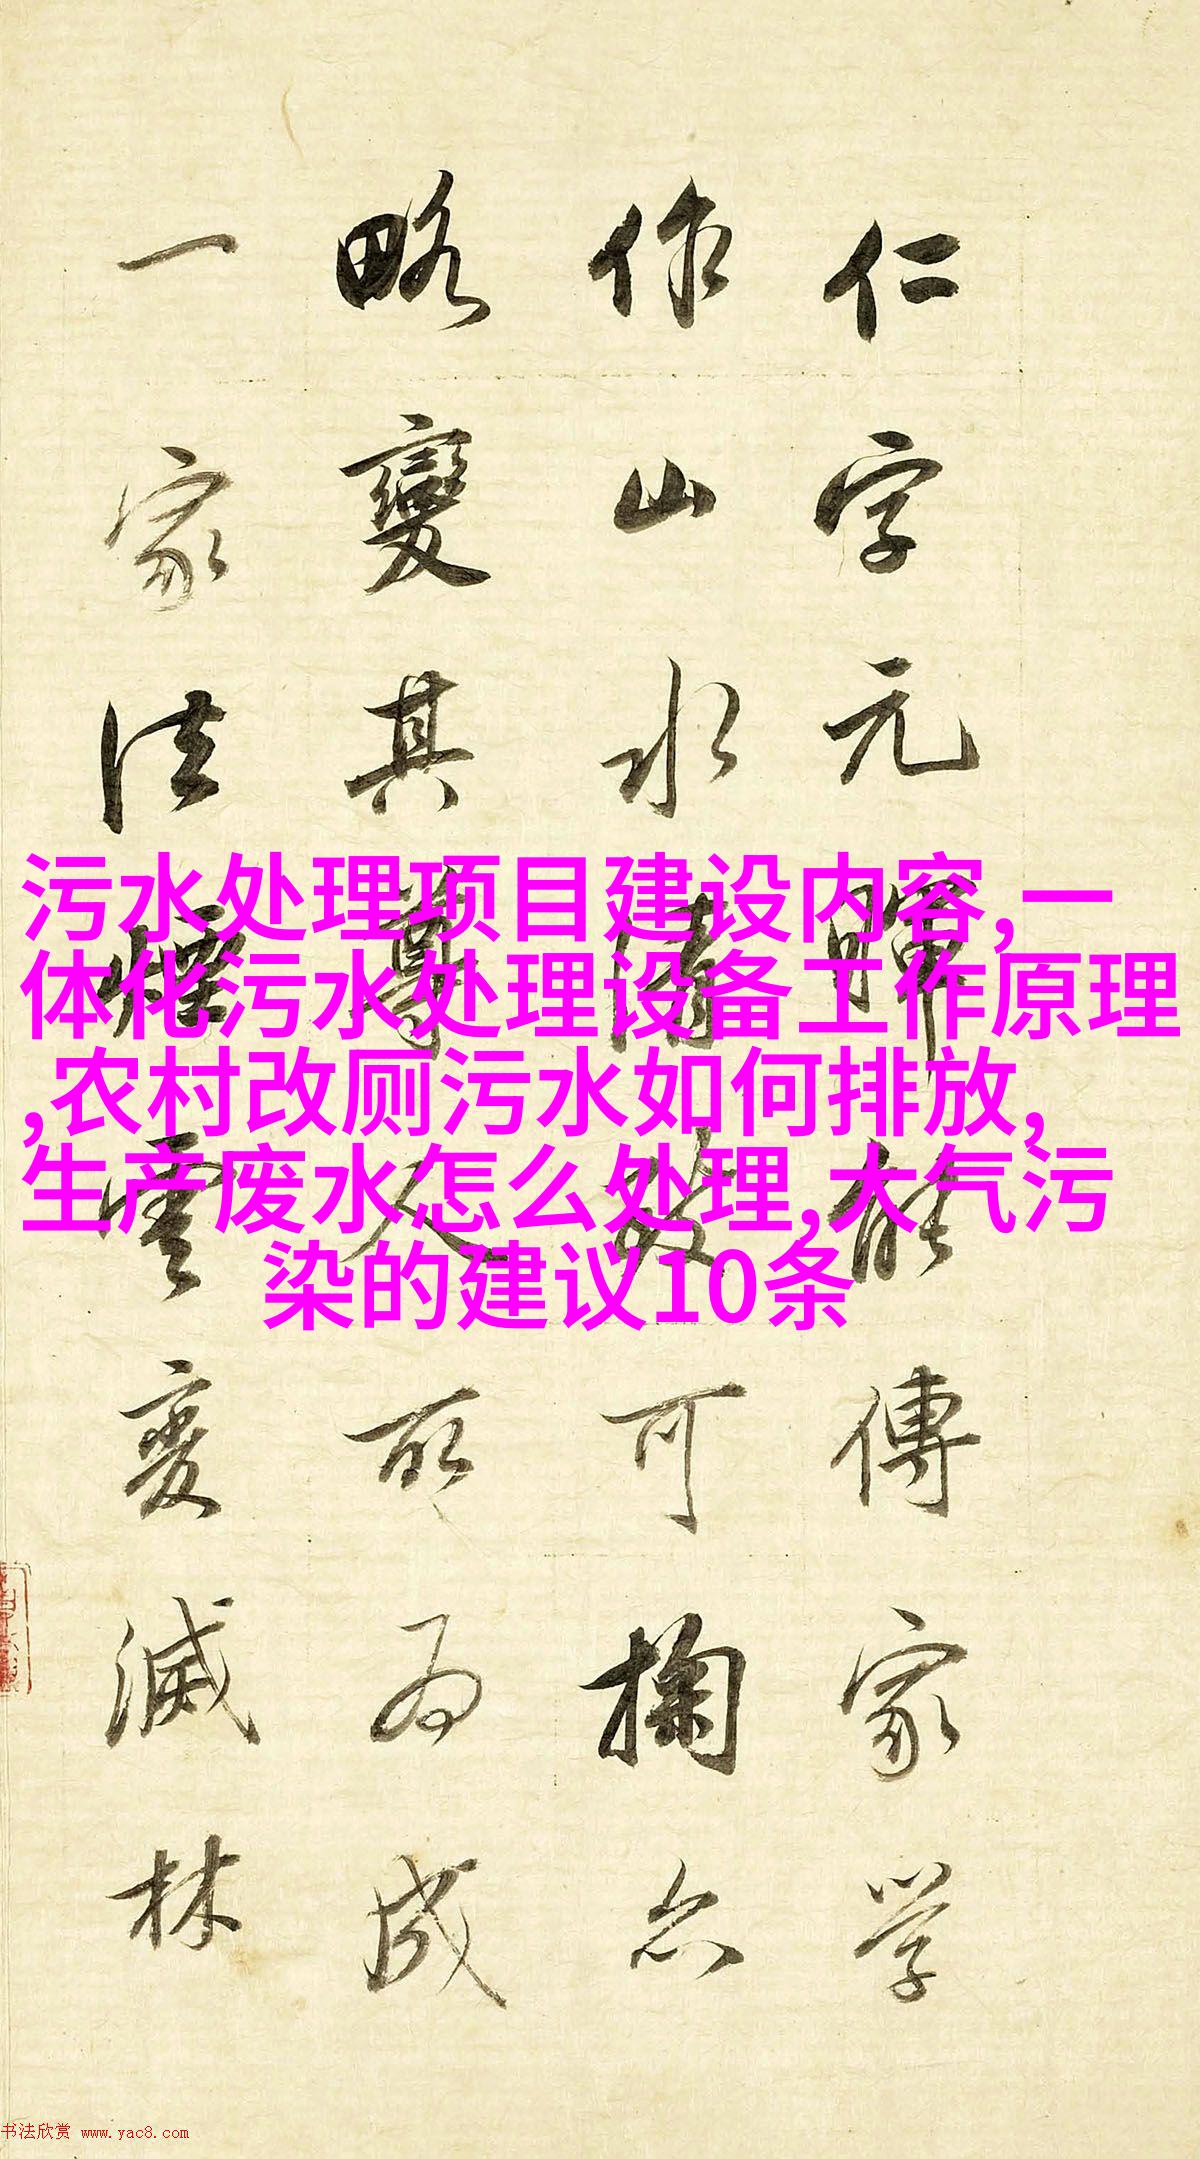 仁字元暉能傳家學
作山水清致可掬亦
略變其尊人所為成
一家法煙雲變滅林
污水处理项目建设内容,一
体化污水处理设备工作原理
,农村改厕污水如何排放,
生产废水怎么处理,大气污
染的建议10条
书法欣赏 www.yac8.com